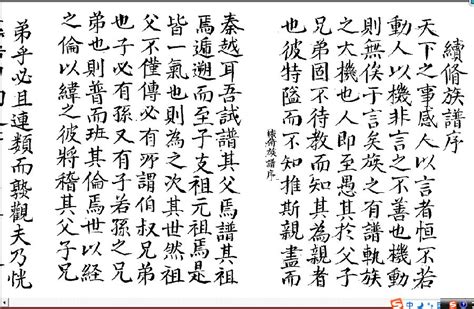 續脩族譜序
天下之事感人以言者恒不若
動人以機非言之不善也機動
則無俟于言矣族之有譜軌族
之大機也人即至愚其於父子
兄弟固不待教而知其為親者
也彼特隘而不知推斯親盡而
續脩族譜序
秦越耳吾試譜其父焉譜其祖
焉遞溯而至子支祖元祖焉是
皆一氣也則為之次其世然祖
父不僅傳必有所謂伯叔兄弟
也子必有孫又有子若孫之兄
弟也則普而班其倫焉世以經
之倫以緯之彼將稽其父子兄
弟乎必且連類而觀夫乃恍
中